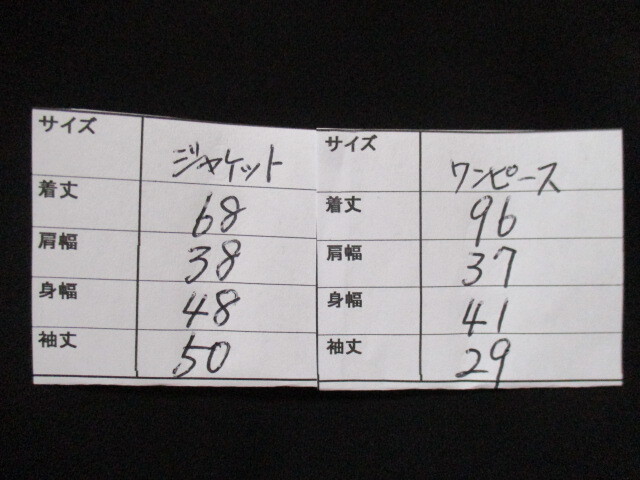 サイズ ジャケット
着丈 68
肩幅 38
身幅 48
袖丈 50
サイズ ワンピース
着丈 96
肩幅 37
身幅 41
袖丈 29